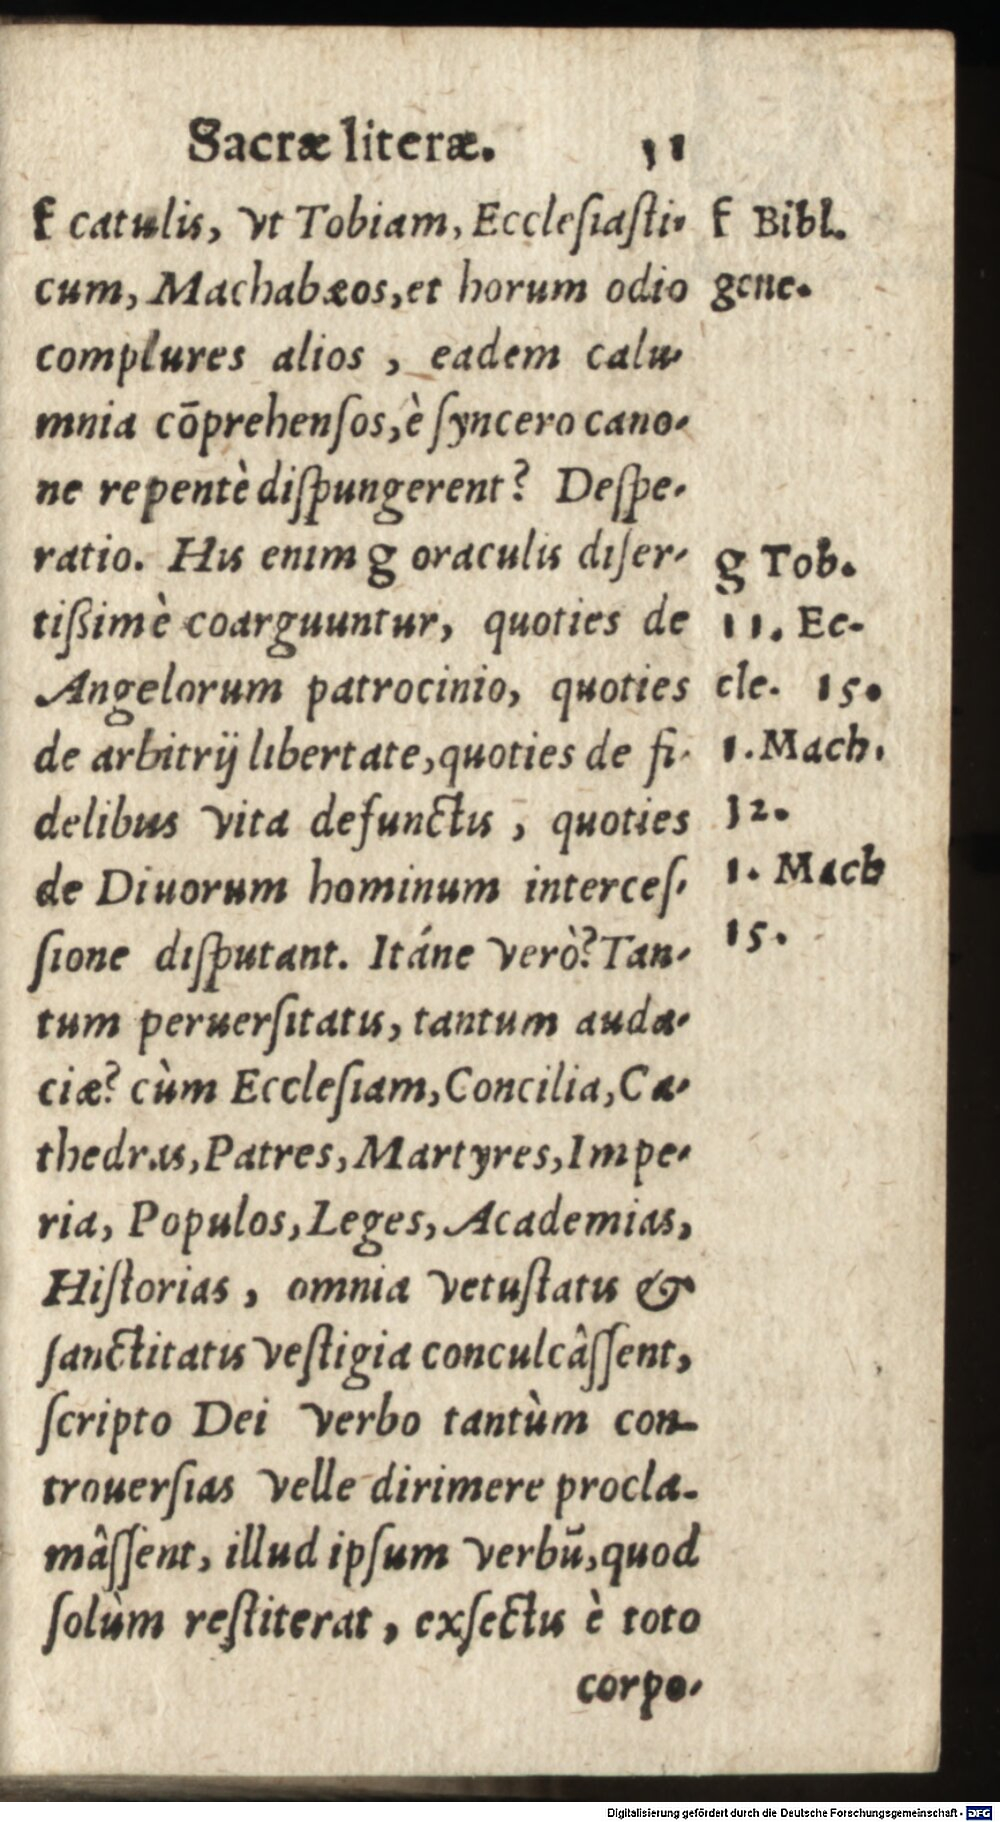 Sacræ literæ. 11
f catulis, vt Tobiam, Eccleſiaſti-
cum, Machabæos, et horum odio
complures alios , eadem calu-
mnia cōprehenſos, è ſyncero cano-
ne repentè diſpungerent? Deſpe-
ratio. His enim g oraculis diſer-
tiſsimè coarguuntur, quoties de
Angelorum patrocinio, quoties
de arbitrij libertate, quoties de fi-
delibus vita defunctis , quoties
de Diuorum hominum interceſ-
ſione diſputant. Itáne verò? Tan-
tum peruerſitatis, tantum auda-
ciæ? cùm Eccleſiam, Concilia, Ca-
thedras, Patres, Martyres, Impe-
ria, Populos, Leges, Academias,
Hiſtorias , omnia vetuſtatis &
ſanctitatis veſtigia conculcâſſent,
ſcripto Dei verbo tantùm con-
trouerſias velle dirimere procla-
mâſſent, illud ipſum verbū, quod
ſolùm reſtiterat , exſectis è toto
corpo-
f Bibl.
gene.
g Tob.
11. Ec-
cle. 15.
1. Mach.
12.
1. Mach
15.
Digitalisierung gefördert durch die Deutsche Forschungsgemeinschaft - DFG